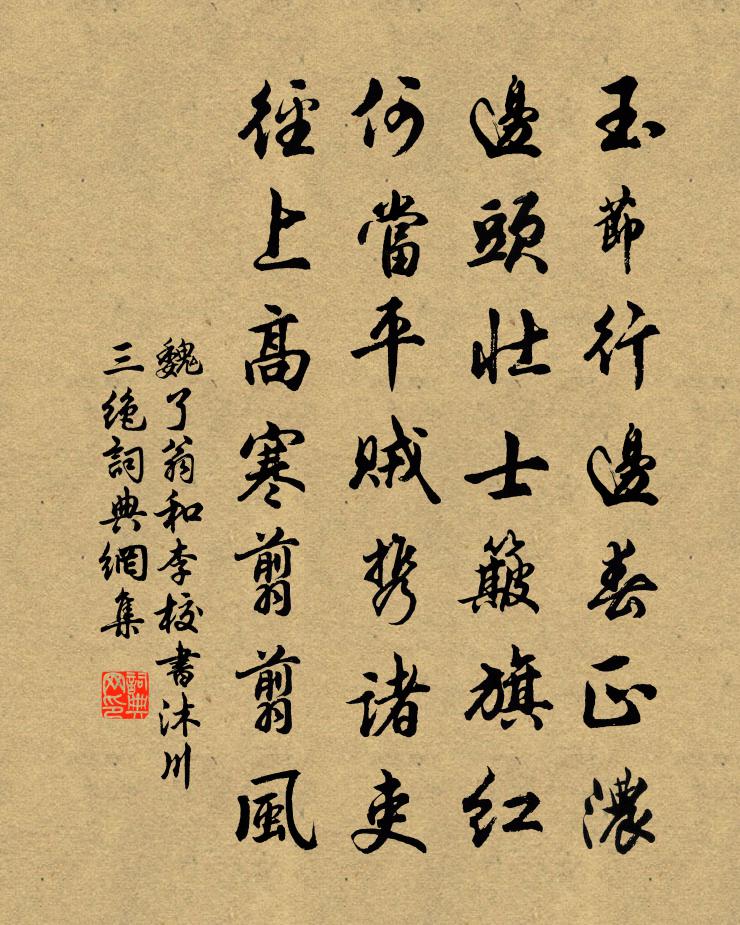 玉節行邊春正濃
邊頭壯士簸旗紅
何當平賊携諸吏
徑上高寒翦翦風
魏了翁和李校書沐川
三絶詞典網集
詞典网印